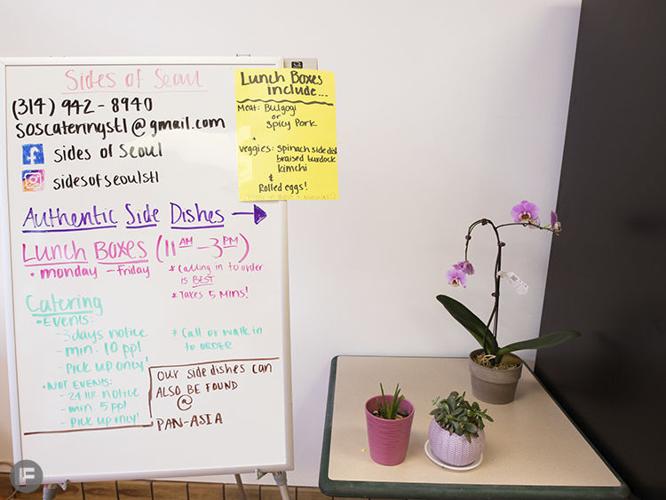 Sides of Seoul
(314) 942-8940
soscateringstl@gmail.com
sides of Seoul
sidesofseoulstl
Authentic Side Dishes →
Lunch Boxes (11AM-3PM)
• monday - Friday
* Calling in to order
is BEST
* Takes 5 Mins!
Catering
• Events:
- 3 days notice
- min. 10 ppl
- Pick up only!
* Call or walk in
to ORDER
• NOT EVENTS:
- 24 HR notice
- min 5 ppl
- Pick up only!
Our side dishes can
ALSO BE FOUND
@
PAN-ASIA
Lunch Boxes
include...
Meat: Bulgogi
or
Spicy Pork
+
Veggies: Spinach side dish
braised burdock
kimchi
&
Rolled eggs!